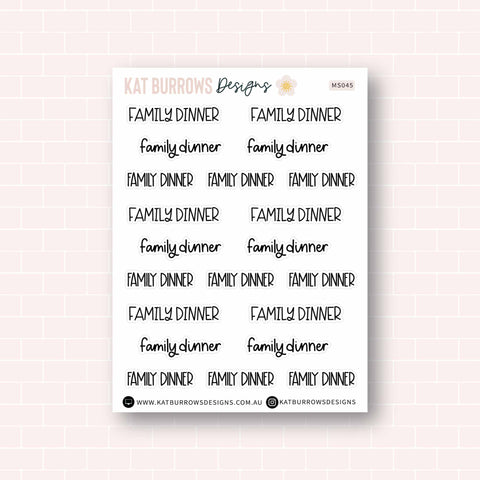 KAT BURROWS Designs MS045
FAMILY DINNER FAMILY DINNER
family dinner family dinner
FAMILY DINNER FAMILY DINNER FAMILY DINNER
FAMILY DINNER FAMILY DINNER
family dinner family dinner
FAMILY DINNER FAMILY DINNER FAMILY DINNER
FAMILY DINNER FAMILY DINNER
family dinner family dinner
FAMILY DINNER FAMILY DINNER FAMILY DINNER
WWW.KATBURROWSDESIGNS.COM.AU KATBURROWSDESIGNS